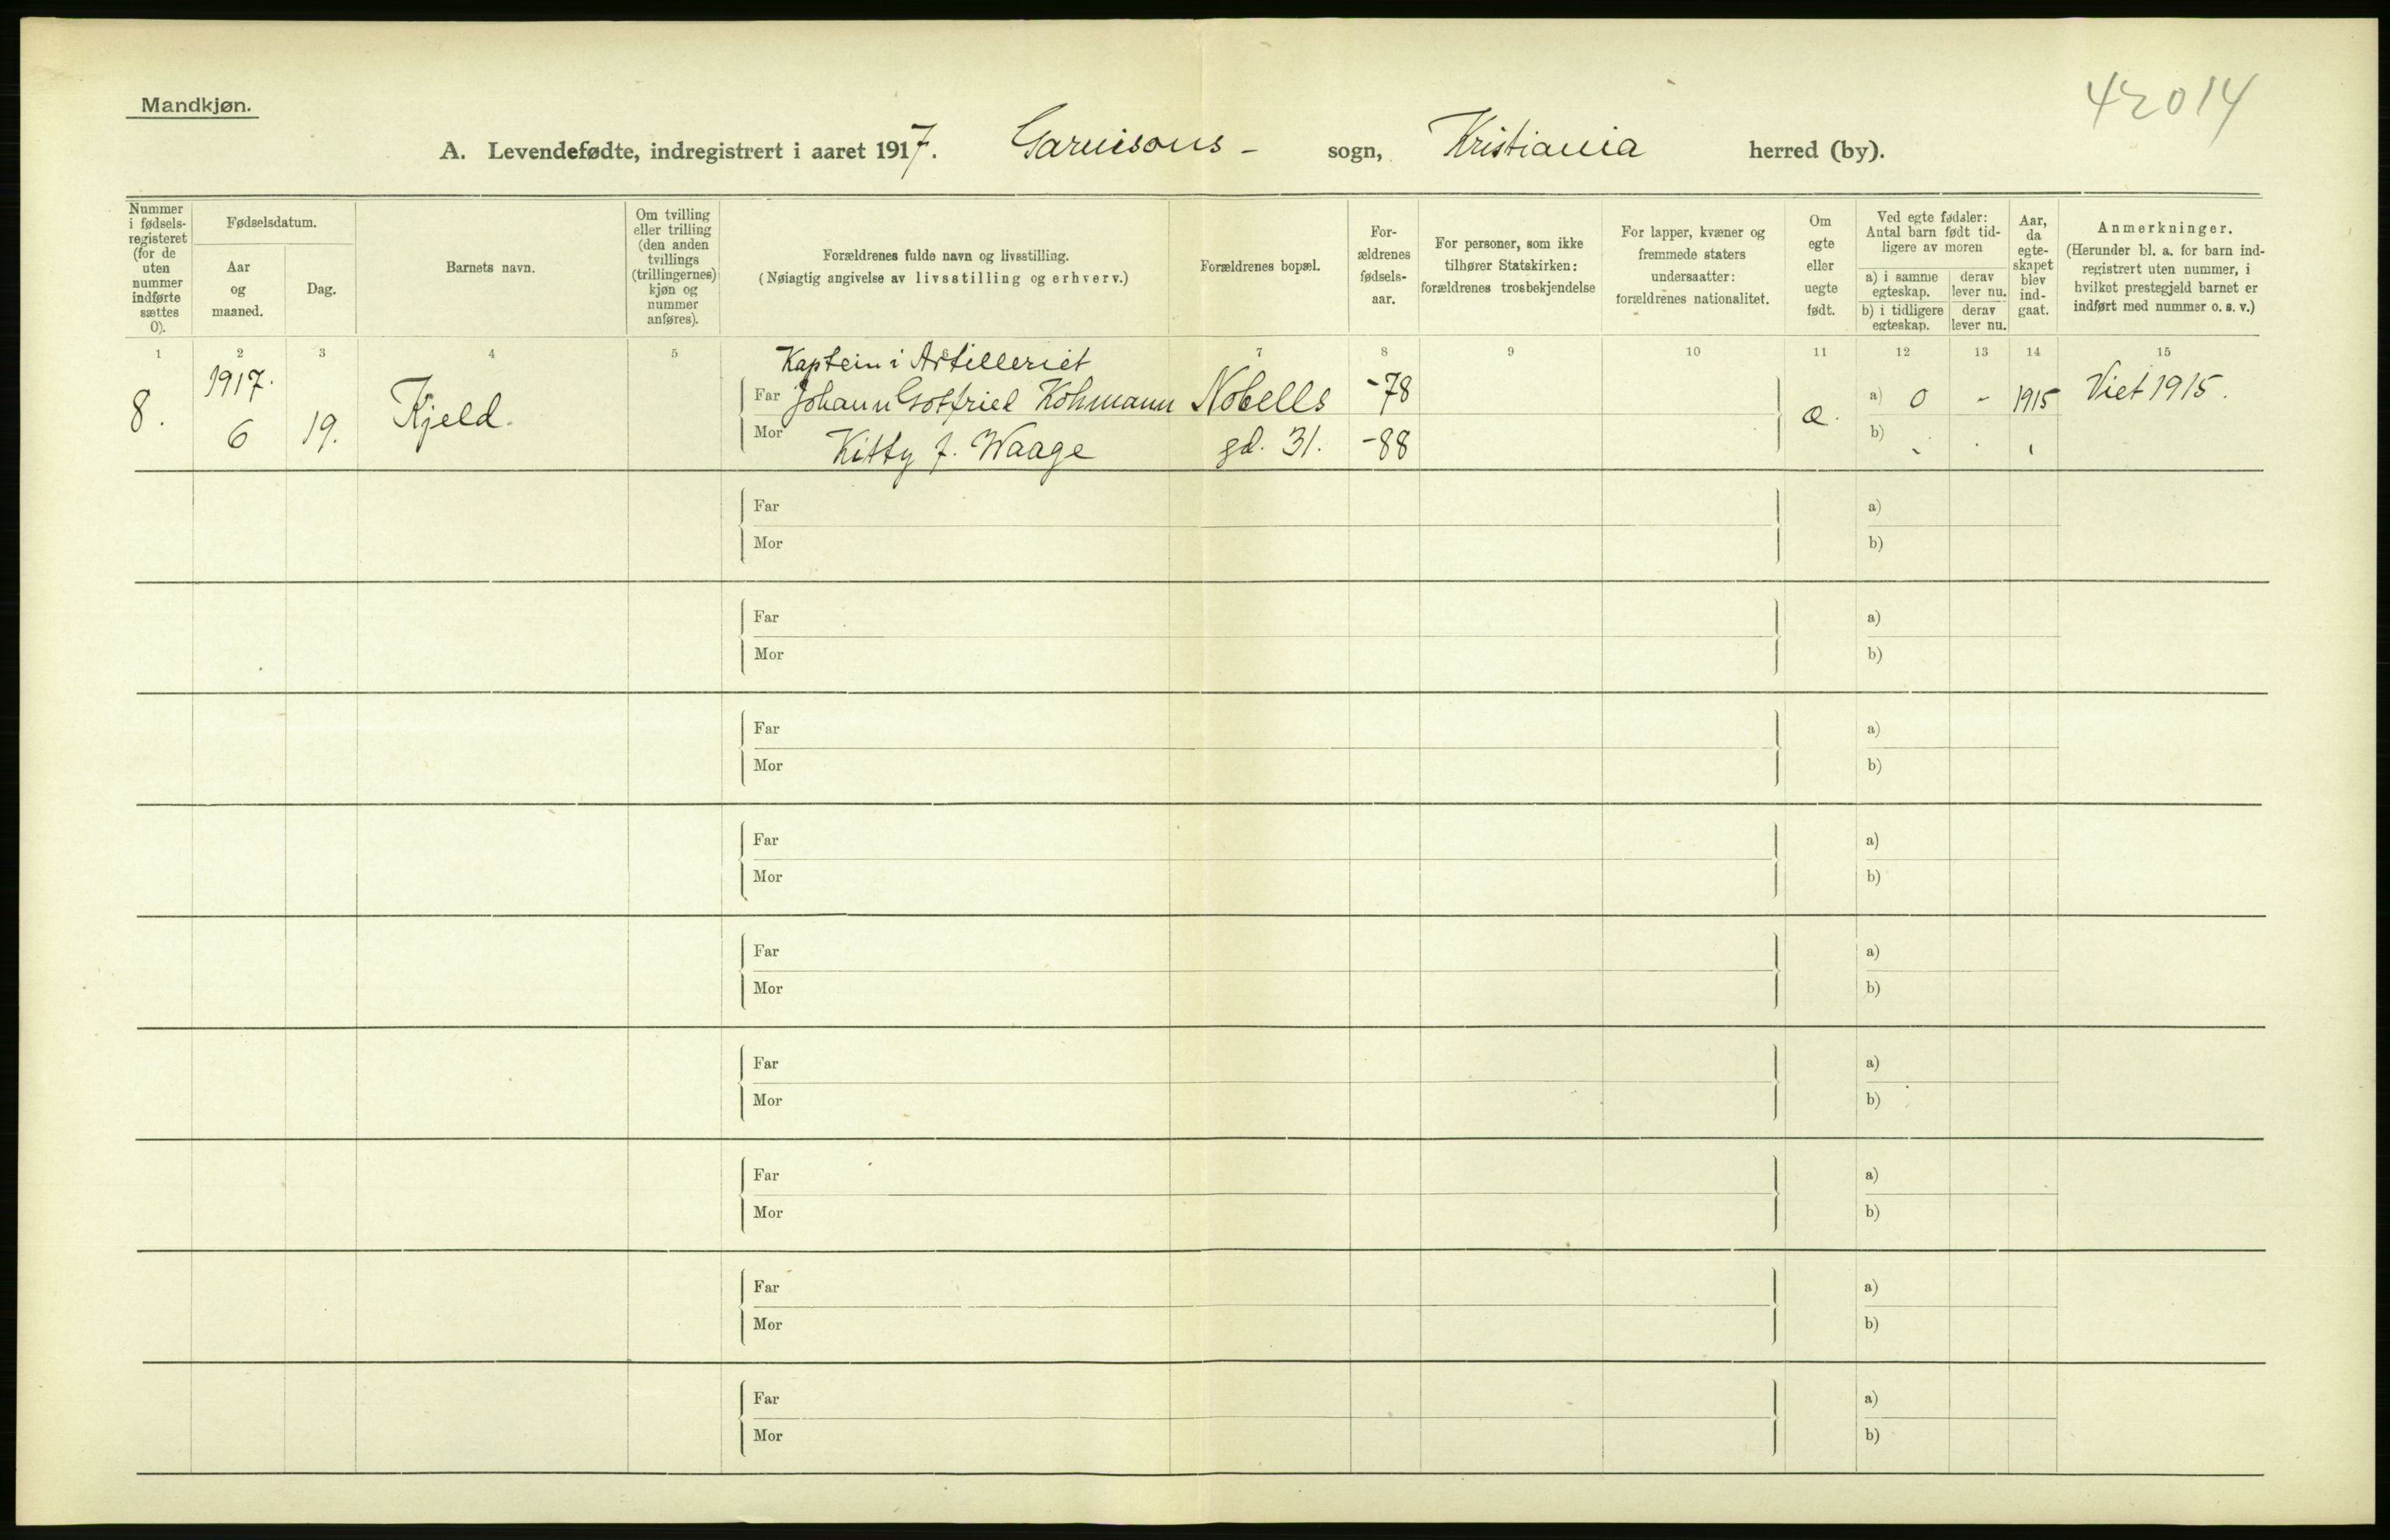 Mandkjøn.
42014
A. Levendefødte, indregistrert i aaret 1917. Garnisons- sogn, Kristiania herred (by).
Nummer i fødsels-registeret (for de uten nummer indførte sættes 0).
Fødselsdatum.
Aar og maaned.
Dag.
Barnets navn.
Om tvilling eller trilling (den anden tvillings (trillingernes) kjøn og nummer anføres).
Forældrenes fulde navn og livsstilling.
(Nøiagtig angivelse av livsstilling og erhverv.)
Forældrenes bopæl.
For-ældrenes fødsels-aar.
For personer, som ikke tilhører Statskirken: forældrenes trosbekjendelse
For lapper, kvæner og fremmede staters undersaatter: forældrenes nationalitet.
Om egte eller uegte født.
Ved egte fødsler: Antal barn født tid-ligere av moren
a) i samme egteskap.
derav lever nu.
b) i tidligere egteskap.
derav lever nu.
Aar, da egte-skapet blev ind-gaat.
Anmerkninger.
(Herunder bl. a. for barn ind-registrert uten nummer, i hvilket prestegjeld barnet er indført med nummer o. s. v.)
1 2 3 4 5 7 8 9 10 11 12 13 14 15
Kaptein i Artilleriet
8. 1917. 6 19. Kjeld.
Far Johann Gotfried Kohmann Nobells -78 a) 0 - 1915 Viet 1915.
Mor Kitty f. Waage gd. 31. -88 b)
Far a)
Mor b)
Far a)
Mor b)
Far a)
Mor b)
Far a)
Mor b)
Far a)
Mor b)
Far a)
Mor b)
Far a)
Mor b)
Far a)
Mor b)
Far a)
Mor b)